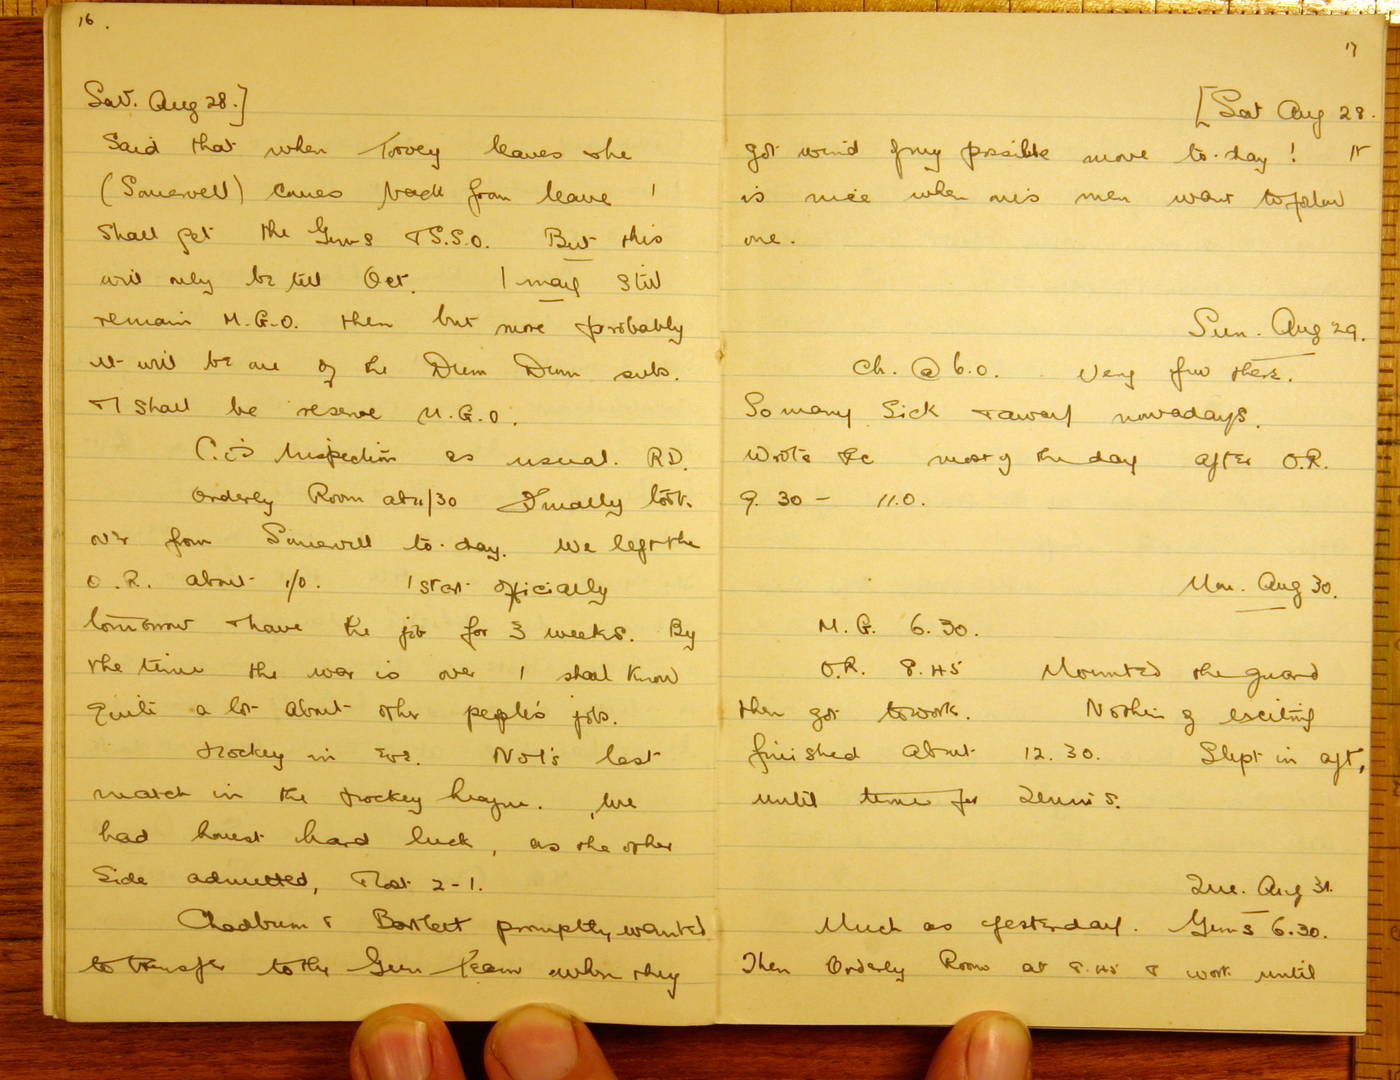 16.
Sat. Aug 28.]
Said that when Tovey leaves & he
(Somervell) comes back from leave I
shall get the Guns & S.S.O. But this
will only be till Oct. I may still
remain M.G.O. then but more probably
it will be one of the Dum Dum subs.
& I shall be reserve M.G.O.
C.O's Inspection as usual. RD.
Orderly Room at 11/30 & finally took
over from Somervell to-day. We left the
O.R. about 1/0. I start officially
tomorrow & have the job for 3 weeks. By
the time the war is over I shall know
quite a lot about other people's jobs.
Hockey in eve. No 1's last
match in the Hockey league. We
had honest hard luck, as the other
side admitted, & lost 2-1.
Chadburn & Bartlett promptly wanted
to transfer to the Gun team when they
17
[Sat Aug 28.
got wind of my possible move to-day! It
is nice when one's men want to follow
one.
Sun. Aug 29.
Ch. @ 6.0. Very few there.
So many sick & away nowadays.
Wrote etc most of the day after O.R.
9.30 - 11.0.
Mon. Aug 30.
M.G. 6.30.
O.R. 8.45 Mounted the guard
then got to work. Nothing exciting
finished about 12.30. Slept in aft,
until time for Tennis.
Tue. Aug 31.
Much as yesterday. Guns 6.30.
Then Orderly Room at 8.45 & work until